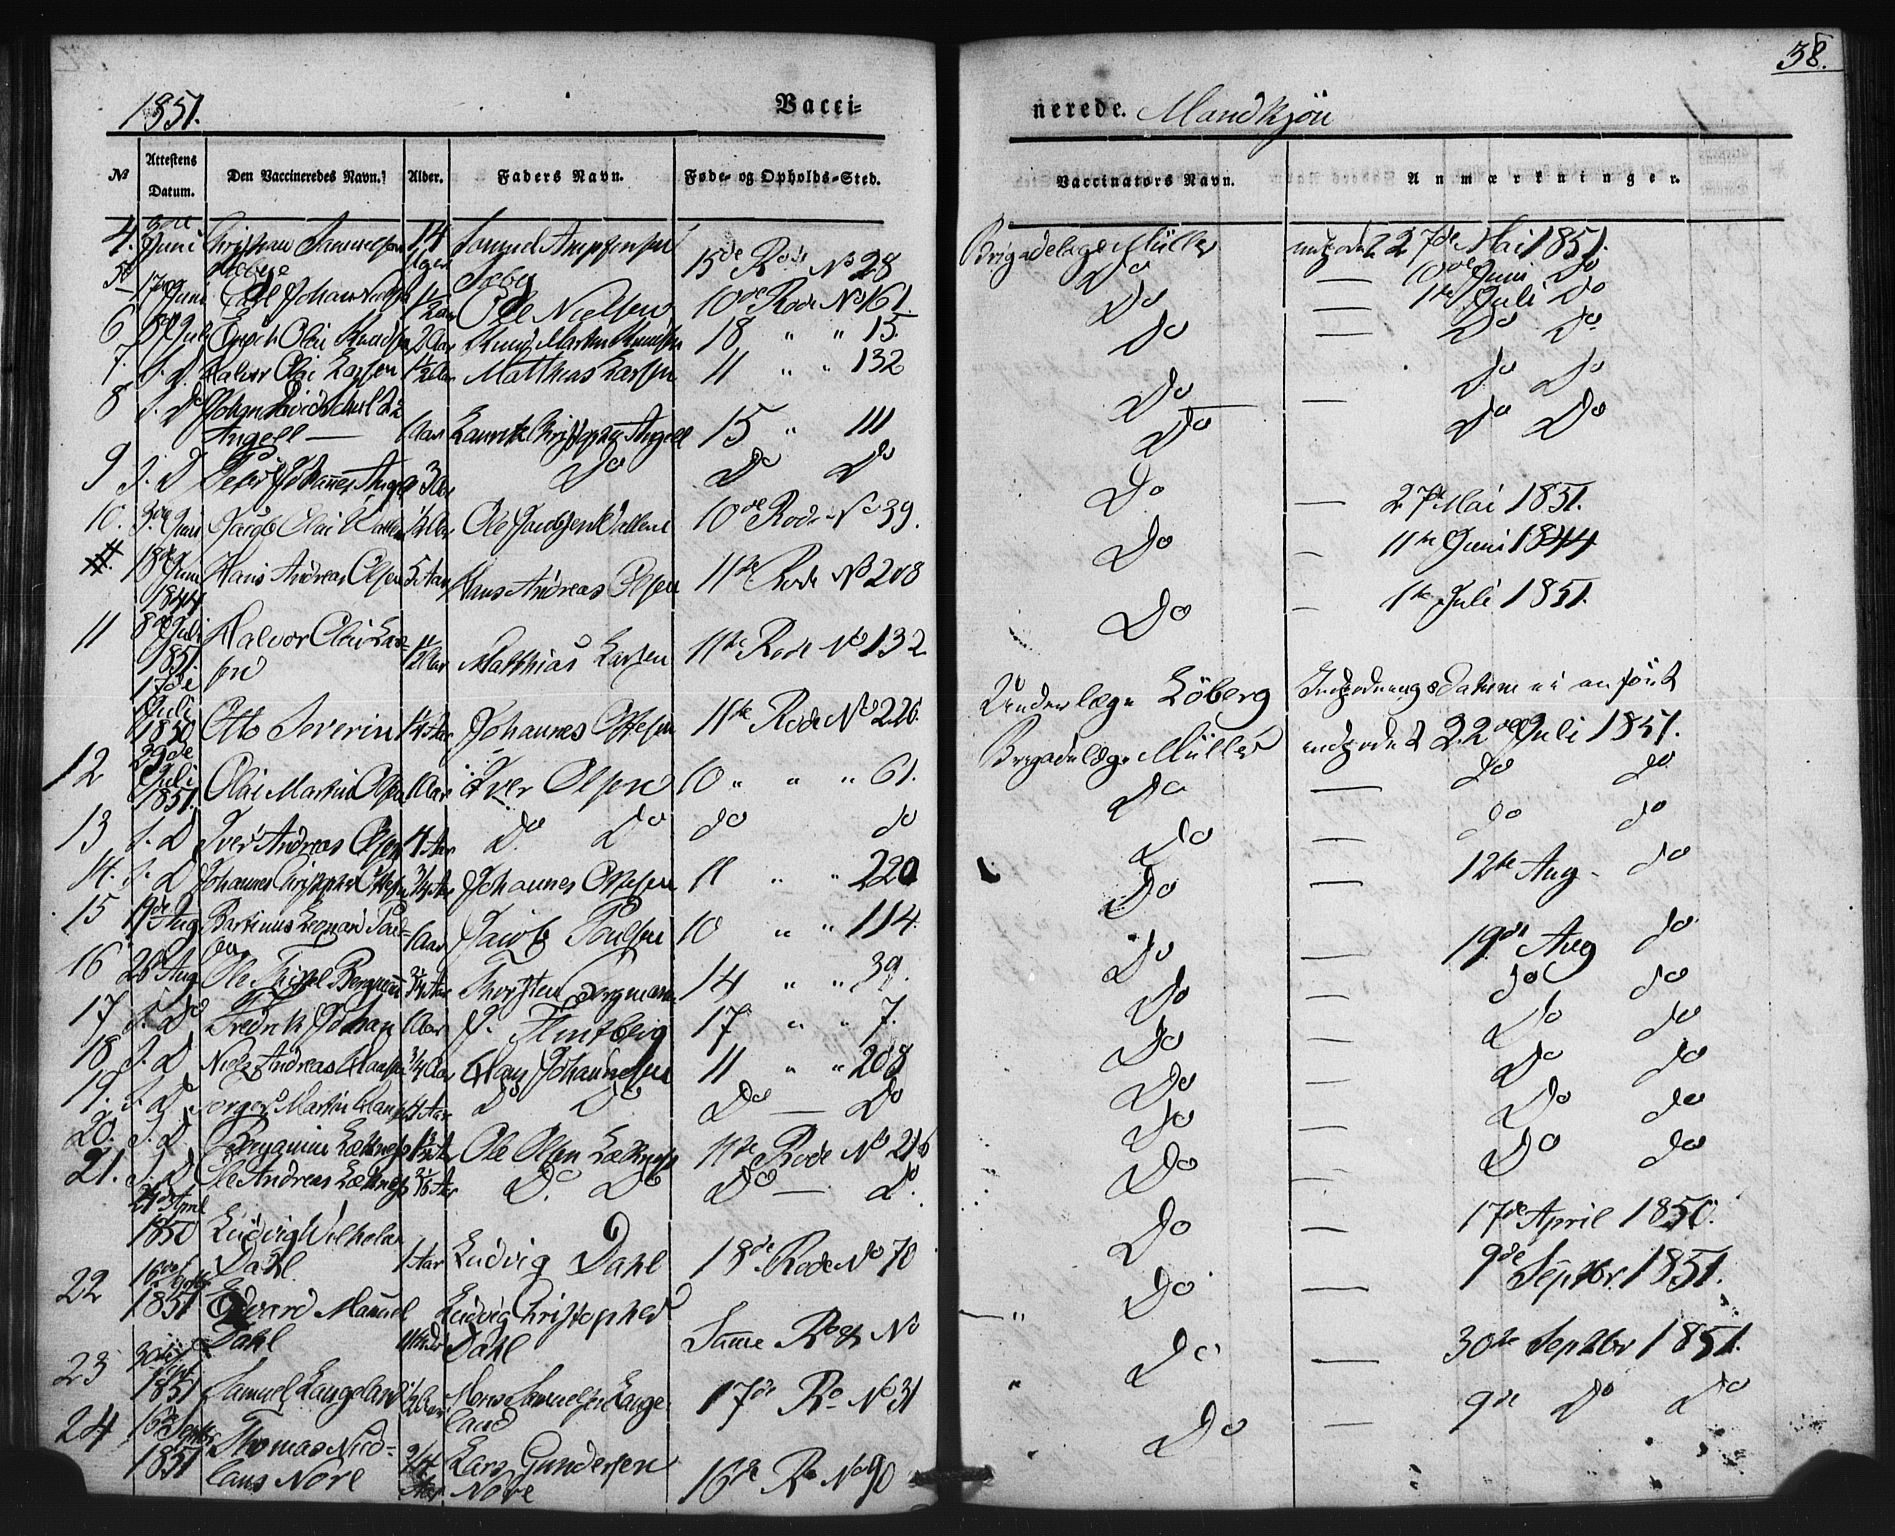 38.
1851. Vacci= nerede. Mandkjön
№ Attestens Datum. Den Vaccineredes Navn. Alder. Faders Navn. Føde- og Opholds-Sted. Vaccinators Navn. Anmærkninger.
4. Juni Christian Samuelsen 1/4 Samuel
Aar 15de Rode No 28 Brigadelæge Müller indpodet 27de Mai 1851.
17de Juni Carl Johan 1/2 Aar Ole Nielsen 10de Rode No 161 Do — 10de Juni Do
6 8de Juli Enoch Olai Knudsen 2 Aar Knud Martin Knudsen 18 " " 15 Do — 1te Juli Do
7. S. D. Halvor Olai Larsen 1/2 Aar Matthias Larsen 11 " " 132 Do — Do Do
8 S. Do Johan David
Angell — 1 Aar Laurits Christopher Angell 15 " 111 Do — Do Do
9 S. D Peter Johannes Angell 3 Aar Do Do Do Do Do Do
10. Juni Jacob Olai 1/2 Aar Ole Jacobsen 10de Rode No 39. Do — 27de Mai 1851.
18de Juni Hans Andreas Olsen 5 Aar Hans Andreas Olsen 11te Rode No 208 Do — 11te Juni 1844
1844
11 8de Juli Halvor Olai Lar=
1851. sen 1/2 Aar Matthias Larsen 11te Rode No 132 Do — 1te Juli 1851.
17de
Juli
1850 Otto Severin 1/4 Aar Johannes Ottesen 11te Rode No 226. Underlæge Löberg Indpodningsdatum ei anfört
12 29de
Juli
1851. Olai Martin Olsen 1 Aar Iver Olsen 10 " " " 61. Brigadelæge Müller indpodet 22de Juli 1851.
13 S. D Iver Andreas Olsen 4 Aar Do Do do do Do — Do do
14. S. D Johannes Christopher Ottesen 3/4 Aar Johannes Ottesen 11 " " 220 Do — do do
15 19de Aug Bartinus Leonard Poul=
sen 1 Aar Jacob Poulsen 10 " " 114. Do — 12te Aug. do
16 26 Aug Ole Bergmann 3/4 Aar Thorsten Bergmann 14 " " 39. Do — 19de Aug do
17 S. Do Fredrik Johan 1 Aar J. Flintberg 17 " " 7. Do — do do
18 S. D Niels Andreas Hansen 3/4 Aar Hans Johannesen 11 " " 208 Do — Do do
19. S. D Jørger Martin Hansen 4 Aar D Do Do — Do Do — Do do
20. S. D. Benjamin 1 1/2 Aar Ole Olsen 11te Rode No 216 Do — Do do
21. S. D Ole Andreas Aar Do. Do Do — D. Do — Do do
21de April
1850 Ludvig Wilhelm
Dahl 1 Aar Ludvig Dahl 18de Rode No 70 Do — 17de April 1850.
22 16de Septbr
1851 Edvard Manuel Ludvig Christopher
Dahl Dahl Samme Rode No Do — 9de Septbr. 1851.
23 30de Sept
1851 Samuel Langeland 1/2 Aar Mons Samuelsen Lange
land 17de Ro No 31 Do — 30te Septbr 1851.
24 16de Septbr
1851 Thomas Nico=
laus Nore 2/4 Aar Lars Gundersen
Nore 16de Ro No 90 Do — 9de Do Do